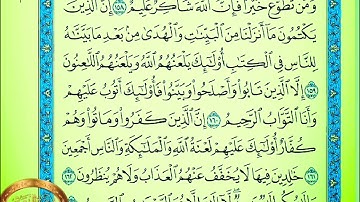 وَمَن تَطَوَّعَ خَيْرًا فَإِنَّ ٱللَّهَ شَاكِرٌ عَلِيمٌ ١٥٨ إِنَّ ٱلَّذِينَ
يَكْتُمُونَ مَآ أَنزَلْنَا مِنَ ٱلْبَيِّنَٰتِ وَٱلْهُدَىٰ مِنۢ بَعْدِ مَا بَيَّنَّٰهُ
لِلنَّاسِ فِى ٱلْكِتَٰبِ أُو۟لَٰٓئِكَ يَلْعَنُهُمُ ٱللَّهُ وَيَلْعَنُهُمُ ٱللَّٰعِنُونَ
١٥٩ إِلَّا ٱلَّذِينَ تَابُوا۟ وَأَصْلَحُوا۟ وَبَيَّنُوا۟ فَأُو۟لَٰٓئِكَ أَتُوبُ عَلَيْهِمْ
وَأَنَا ٱلتَّوَّابُ ٱلرَّحِيمُ ١٦٠ إِنَّ ٱلَّذِينَ كَفَرُوا۟ وَمَاتُوا۟ وَهُمْ
كُفَّارٌ أُو۟لَٰٓئِكَ عَلَيْهِمْ لَعْنَةُ ٱللَّهِ وَٱلْمَلَٰٓئِكَةِ وَٱلنَّاسِ أَجْمَعِينَ
١٦١ خَٰلِدِينَ فِيهَا لَا يُخَفَّفُ عَنْهُمُ ٱلْعَذَابُ وَلَا هُمْ يُنظَرُونَ ١٦٢